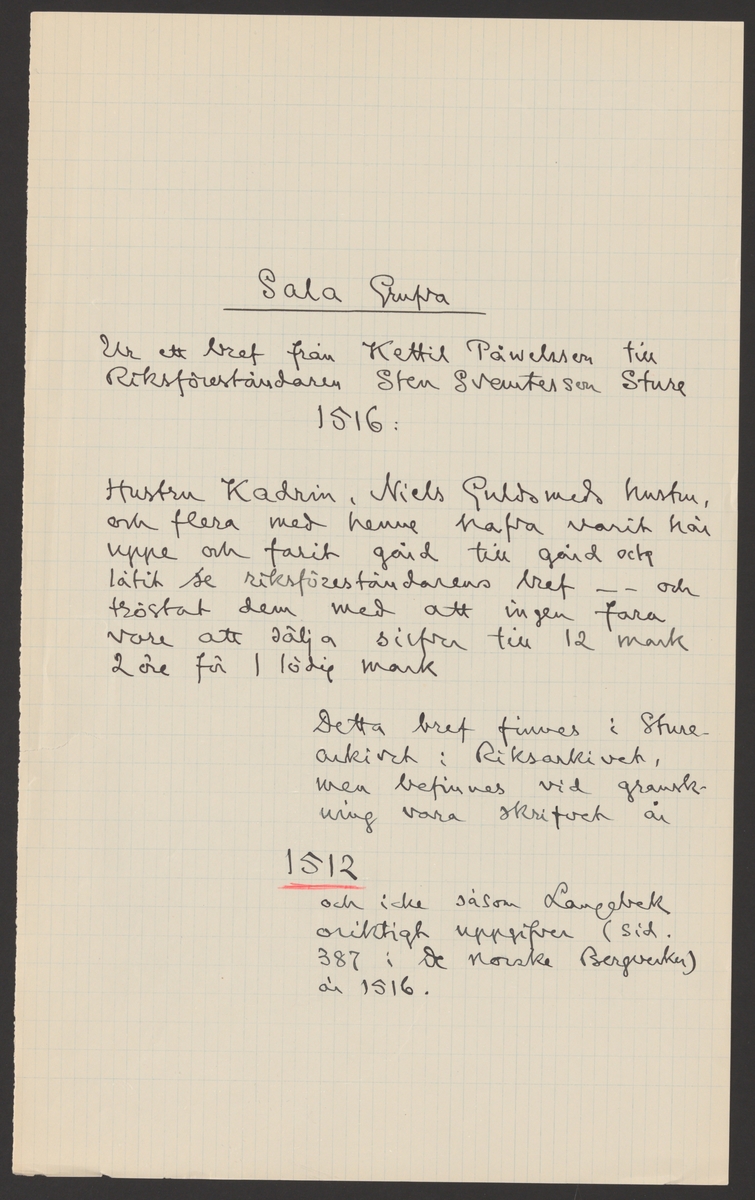 Sala Grufva
Ur ett bref från Kettil Påwelsson till
Riksföreståndaren Sten Svantesson Sture
1516:
Hustru Kadrin, Niels Guldsmeds hustru,
och flera med henne hafva varit här
uppe och farit gård till gård och
låtit se riksföreståndarens bref -- och
tröstat dem med att ingen fara
vore att sälja silfver till 12 mark
2 öre för 1 lödig mark
Detta bref finnes i Sture-
arkivet i Riksarkivet,
men befinnes vid gransk-
ning vara skrifvet år
1512
och icke såsom Langebek
oriktigt uppgifver (sid.
387 i De Norske Bergverker)
år 1516.